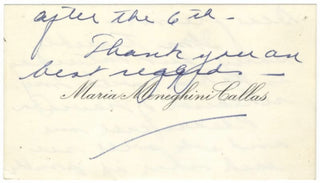 after the 6th -
Thank you an
best regards -
Maria Meneghini Callas